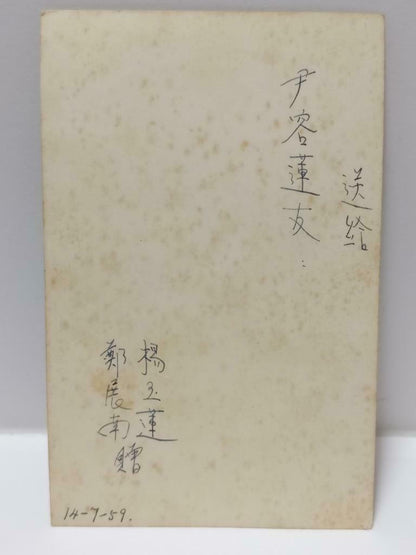 送給
尹容蓮友:
楊玉蓮
鄭展南贈
14-7-59.